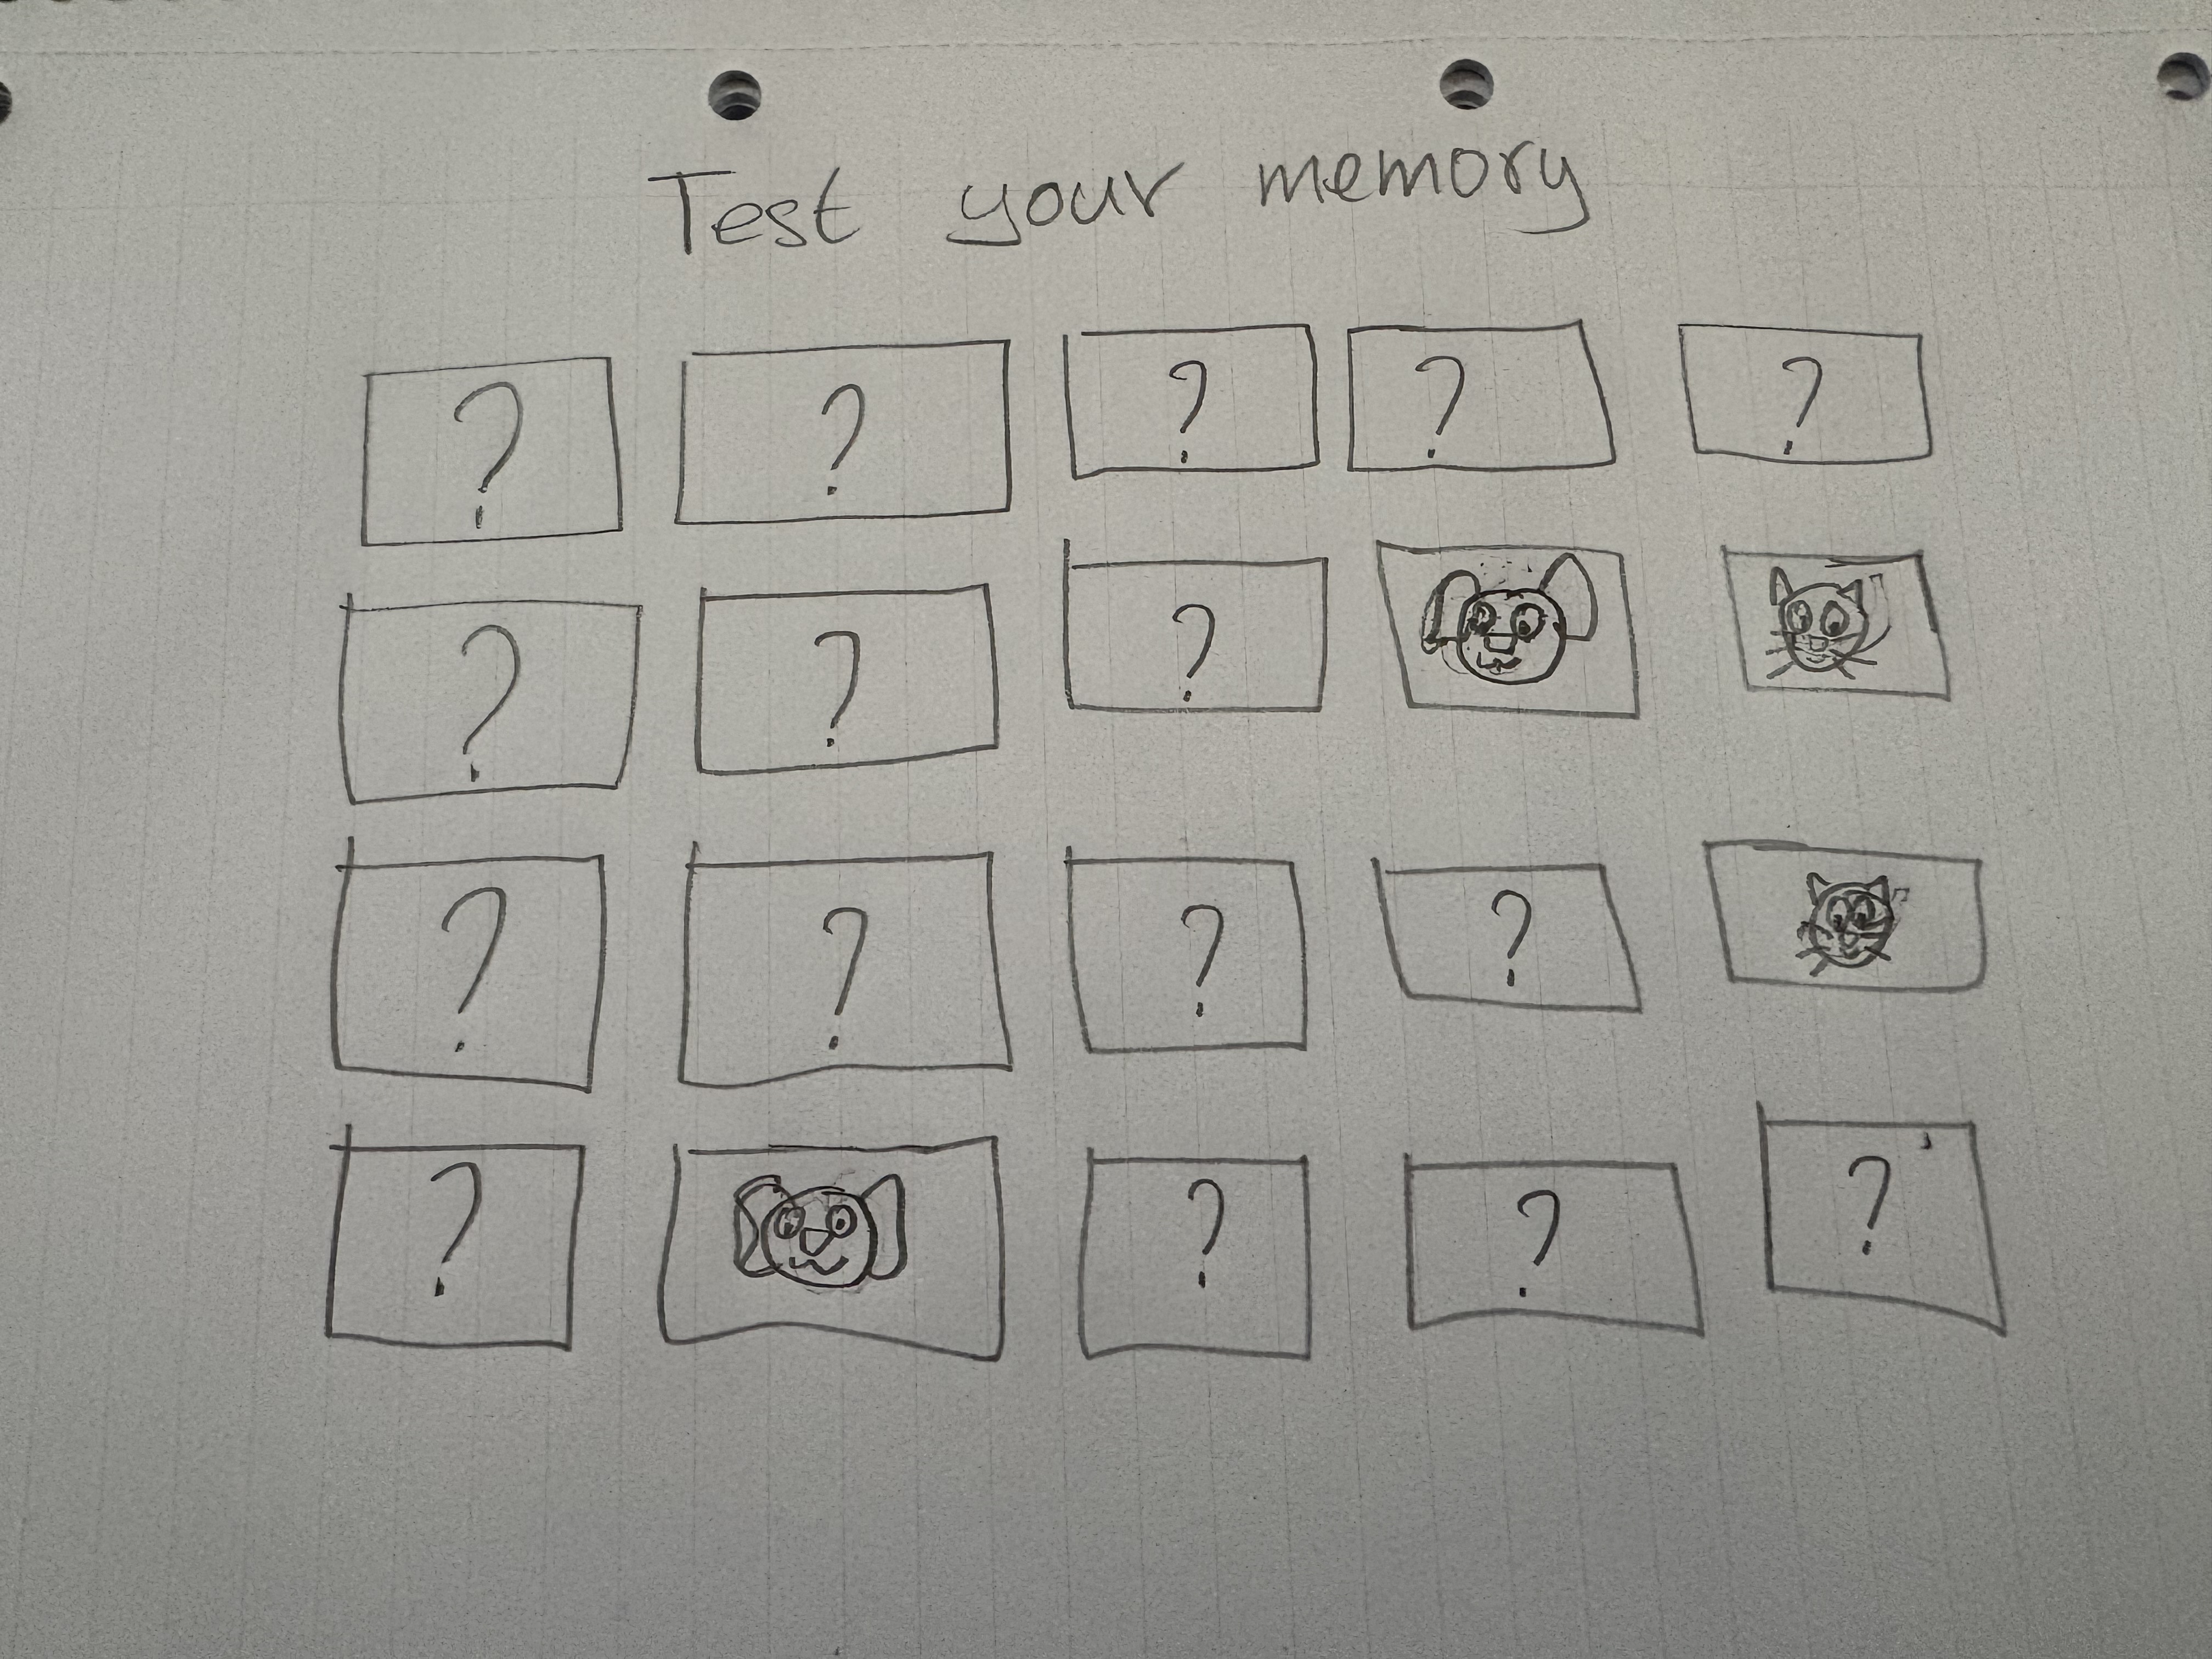 Test your memory
? ? ? ? ?
? ? ?
? ? ? ?
? ? ? ?